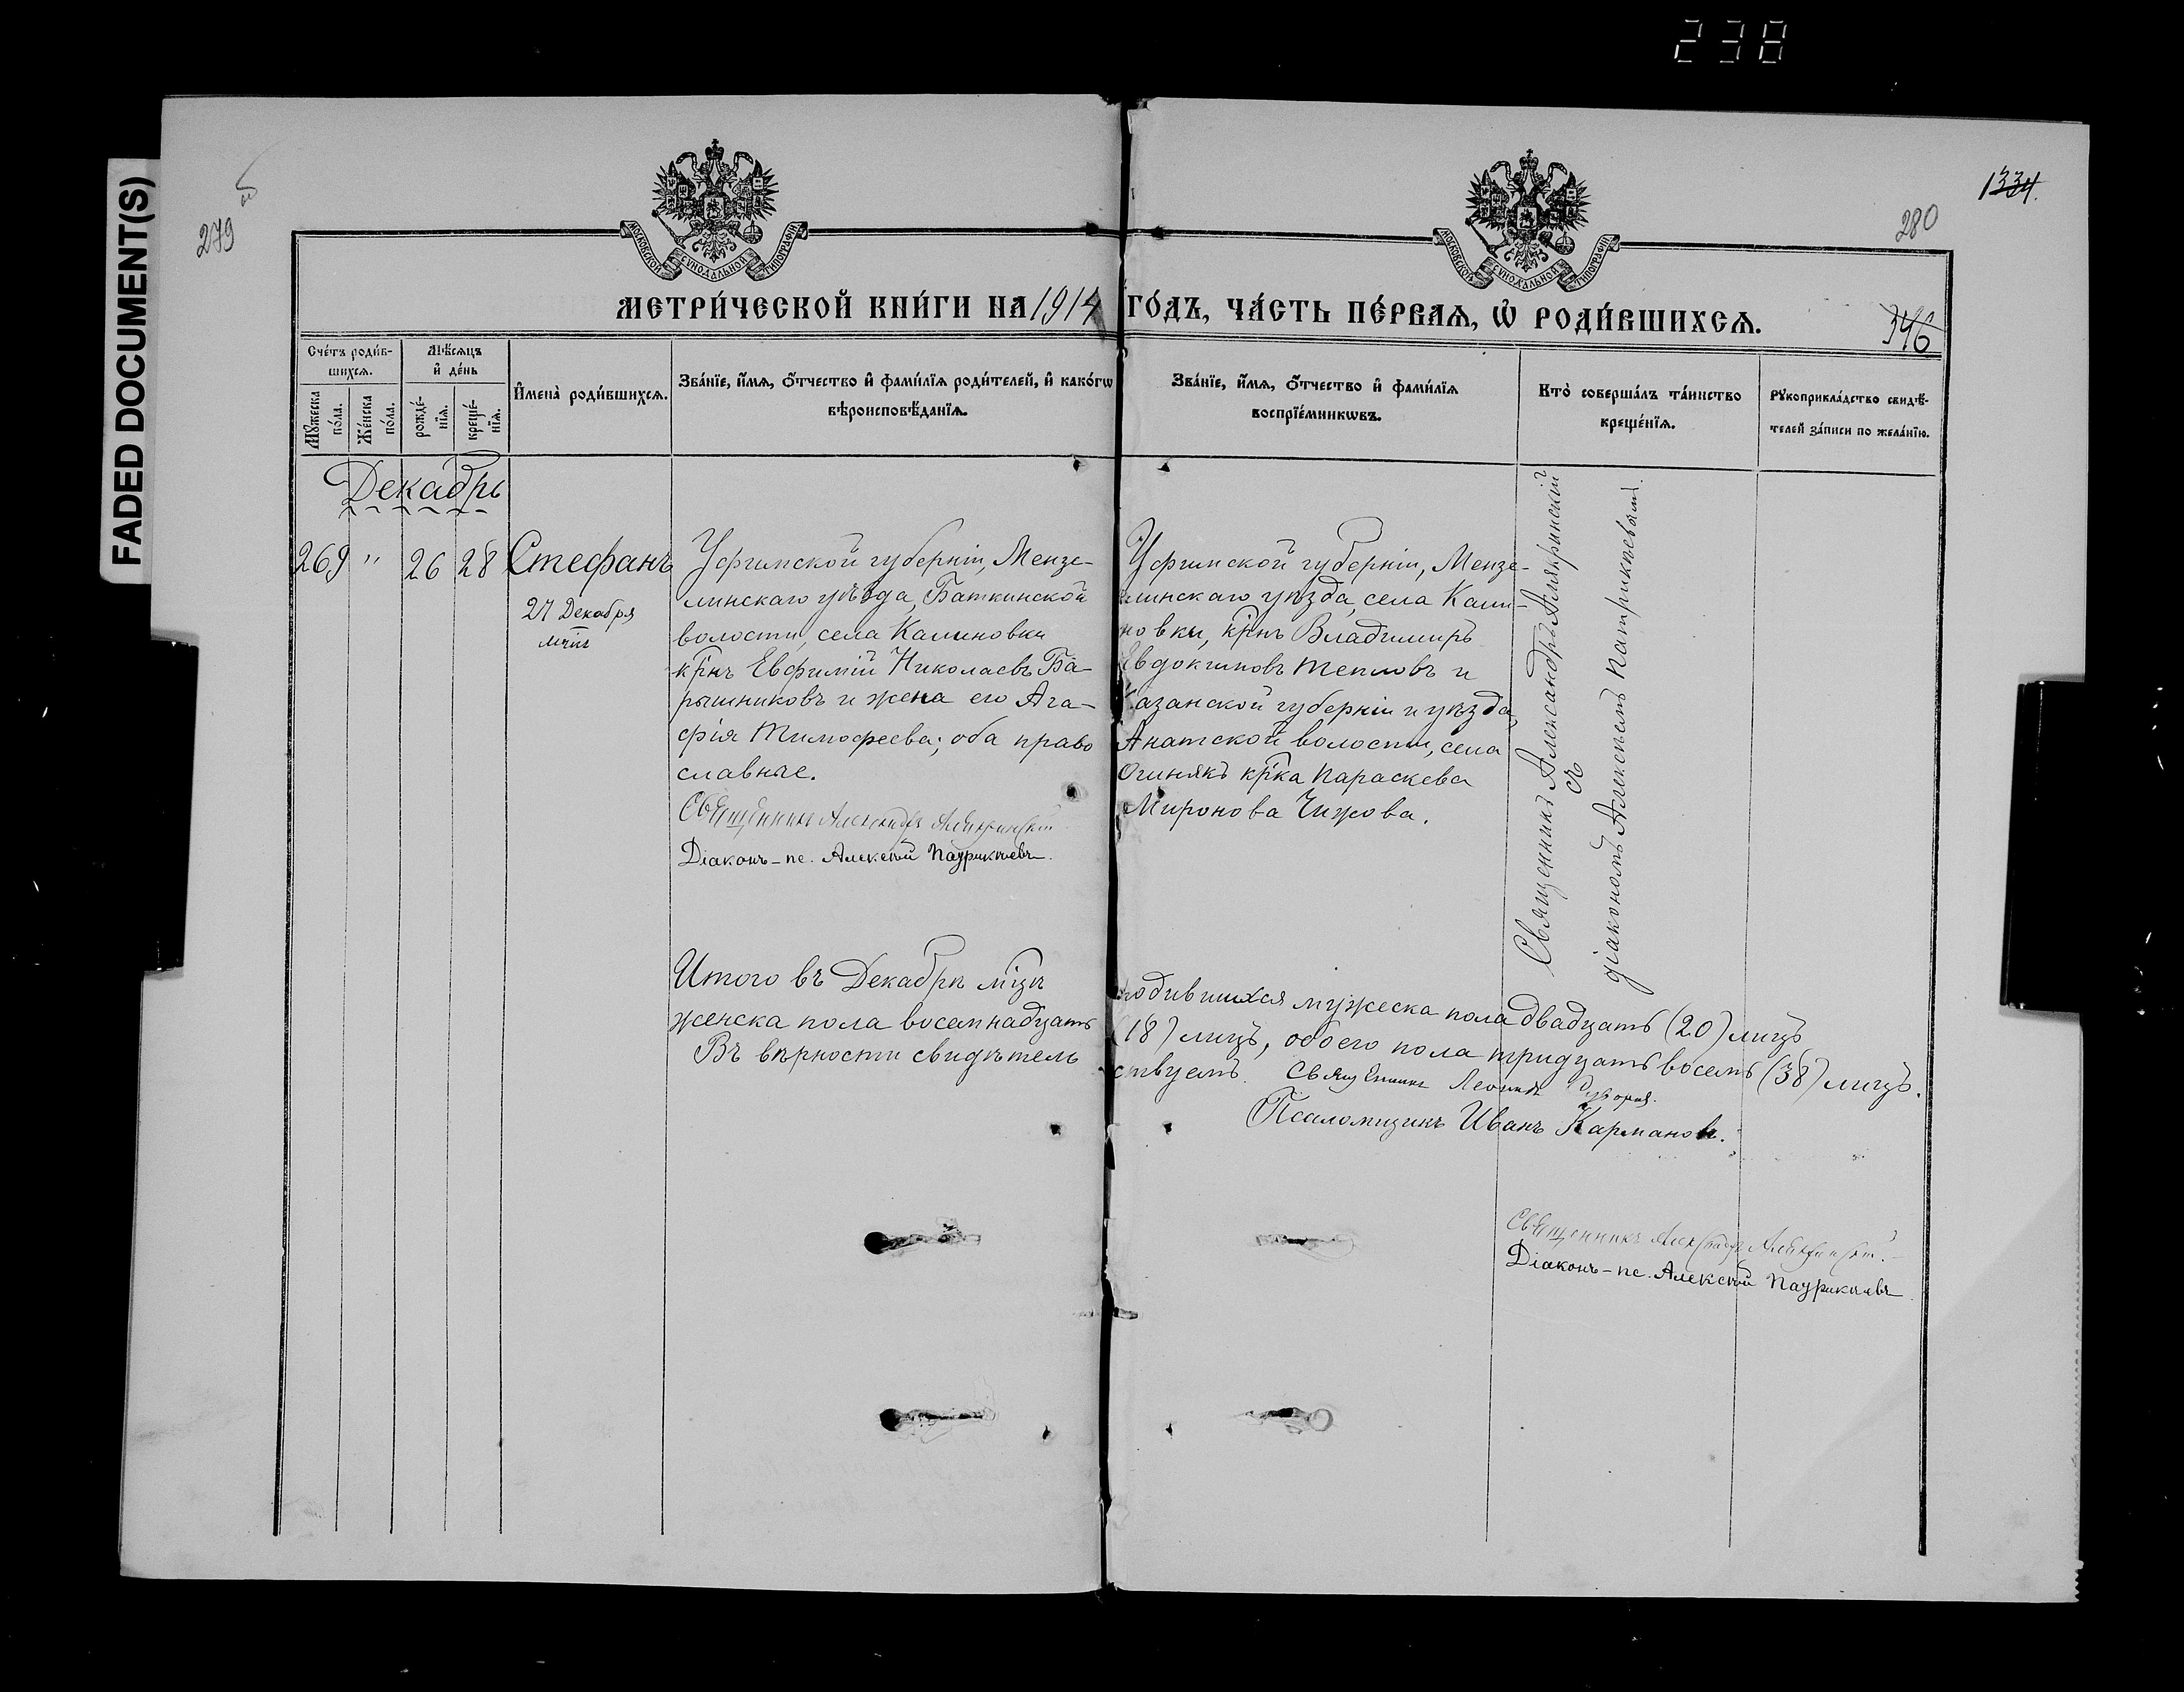 238
FADED DOCUMENT(S)
279 об
1334.
280
346
МОСКОВСКОЙ СУНОДАЛЬНОЙ ТИПОГРАФІИ
МОСКОВСКОЙ СУНОДАЛЬНОЙ ТИПОГРАФІИ
МЕТРИ́ЧЕСКОЙ КНИ́ГИ НА 1914 ГО́ДЪ, ЧА́СТЬ ПЕ́РВАѦ, Ѡ҆ РОДИ́ВШИХСѦ.
Сче́тъ роди́в-
шихсѧ.
Мꙋ́жеска
по́ла.
Же́нска
по́ла.
Мѣ́сѧцъ
и҆ де́нь
рожде́-
нїѧ.
креще́-
нїѧ.
И҆мена̀ роди́вшихсѧ.
Зва́нїе, и҆́мѧ, ѻ҆́тчество и҆ фами́лїѧ роди́телей, и҆ како́гѡ
вѣроисповѣ́данїѧ.
Зва́нїе, и҆́мѧ, ѻ҆́тчество и҆ фами́лїѧ
воспрїе́мникѡвъ.
Кто̀ соверша́лъ та́инство
креще́нїѧ.
Рꙋкоприкла́дство свидѣ́-
телей за́писи по жела́нїю.
Декабрь
269 " 26 28 Стефанъ
27 Декабря
Уфимской губерніи, Мензе-
линскаго уѣзда, Баткинской
волости, села Калиновки
крнъ Евфимій Николаевъ Ба-
рышниковъ и жена его Ага-
фія Тимофеева; оба право
славные.
Священникъ Александръ
Діаконъ-пс. Алексій Патрикѣевъ.
Уфимской губерніи, Мензе-
линскаго уѣзда, села Кали-
новки, крнъ Владимиръ
Евдокимовъ Тепловъ и
Казанской губерніи и уѣзда,
Анатской волости, села
крка Параскева
Миронова Чижова.
Священникъ Александръ
съ
діакономъ Алексіемъ Патрикѣевымъ.
Итого въ Декабрѣ мцѣ родившихся мужеска пола двадцать (20) лицъ,
женска пола восемнадцать (18) лицъ, обоего пола тридцать восемь (38) лицъ.
Въ вѣрности свидѣтельствуемъ. Священникъ Леонидъ
Псаломщикъ Иванъ Кармановъ.
Священникъ Александръ
Діаконъ-пс. Алексій Патрикѣевъ